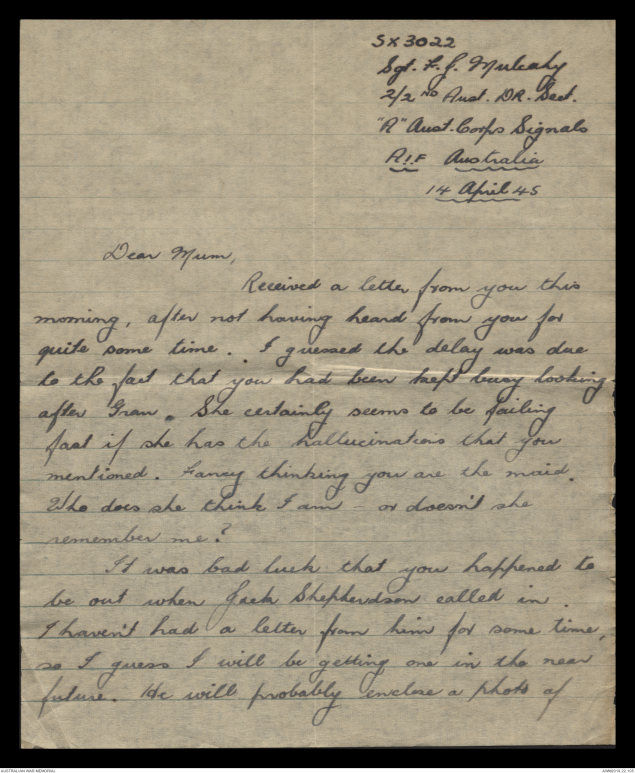 SX3022
Sgt. F. J. Mulcahy
2/2 ND Aust. DR. Sect.
"A" Aust. Corps Signals
A.I.F Australia
14 April 45
Dear Mum,
Received a letter from you this
morning, after not having heard from you for
quite some time. I guessed the delay was due
to the fact that you had been kept busy looking
after Gran. She certainly seems to be failing
fast if she has the hallucinations that you
mentioned. Fancy thinking you are the maid.
Who does she think I am - or doesn't she
remember me?
It was bad luck that you happened to
be out when Jack Shepherdson called in.
I haven't had a letter from him for some time,
so I guess I will be getting one in the near
future. He will probably enclose a photo of
AUSTRALIAN WAR MEMORIAL